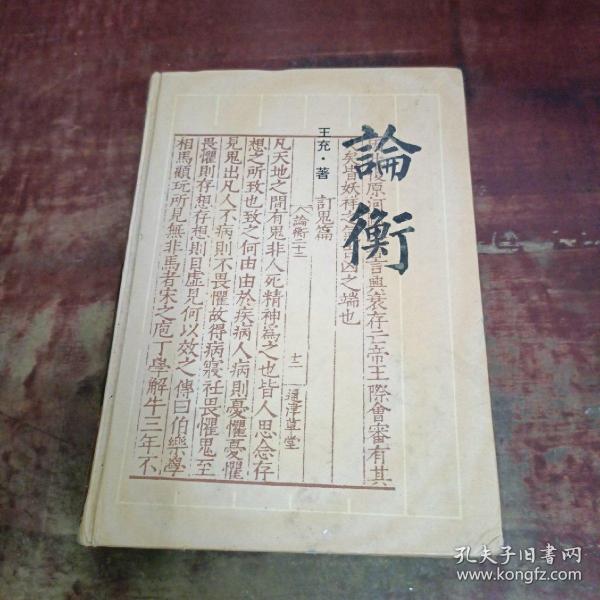 論衡
王充·著
原河
言興衰存亡帝王際會審有其
矣皆妖祥之
吉凶之端也
訂鬼篇
論衡二十二
十二
通津草堂
凡天地之間有鬼非人死精神為之也皆人思念存
想之所致也致之何由由於疾病人病則憂懼憂懼
見鬼出凡人不病則不畏懼故得病寢衽畏懼鬼至
畏懼則存想存想則目虛見何以效之傳曰伯樂學
相馬顧玩所見無非馬者宋之庖丁學解牛三年不
孔夫子旧书网
www.kongfz.com